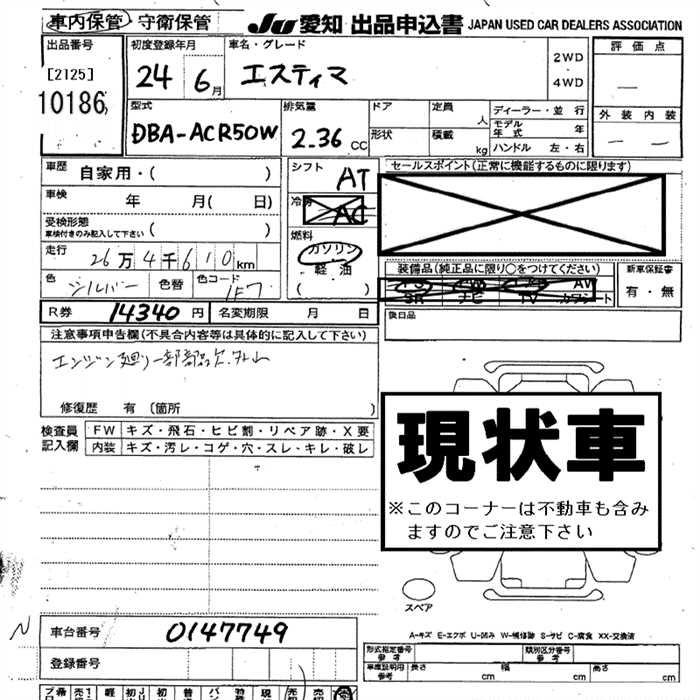 車内保管・守衛保管
JU 愛知 出品申込書 JAPAN USED CAR DEALERS ASSOCIATION
出品番号
[2125]
10186
初度登録年月
24 6月
車名・グレード
エスティマ
2WD
・
4WD
評価点
—
外装 内装
— —
型式
DBA-ACR50W
排気量
2.36 CC
ドア
形状
定員 人
積載 kg
ディーラー・並行
モデル年式 年
ハンドル 左・右
車歴 自家用・( )
車検 年 月( 日)
受検形態
車検付きのみ記入して下さい ( )
走行 26万4千610km
色 シルバー 色替 色コード 1F7
シフト AT
冷房 AC
燃料
ガソリン
軽油
( )
セールスポイント(正常に機能するものに限ります)
装備品(純正品に限り○をつけてください)
SR ナビ TV カワシート
新車保証書
有・無
R券 14340円 名変期限 月 日
後日品
注意事項申告欄(不具合内容等は具体的に記入して下さい)
エンジン廻り一部部品欠、外し
修復歴 有 (箇所 )
検査員記入欄
FW キズ・飛石・ヒビ割・リペア跡・X要
内装 キズ・汚レ・コゲ・穴・スレ・キレ・破レ
現状車
※このコーナーは不動車も含み
ますのでご注意下さい
スペア
A-キズ E-エクボ U-凹み W-補修跡 S-サビ C-腐食 XX-交換済
N
車台番号 0147749
登録番号
形式指定番号 参考
類別区分番号 参考
車庫証明用 参考 長さ cm 幅 cm 高さ cm